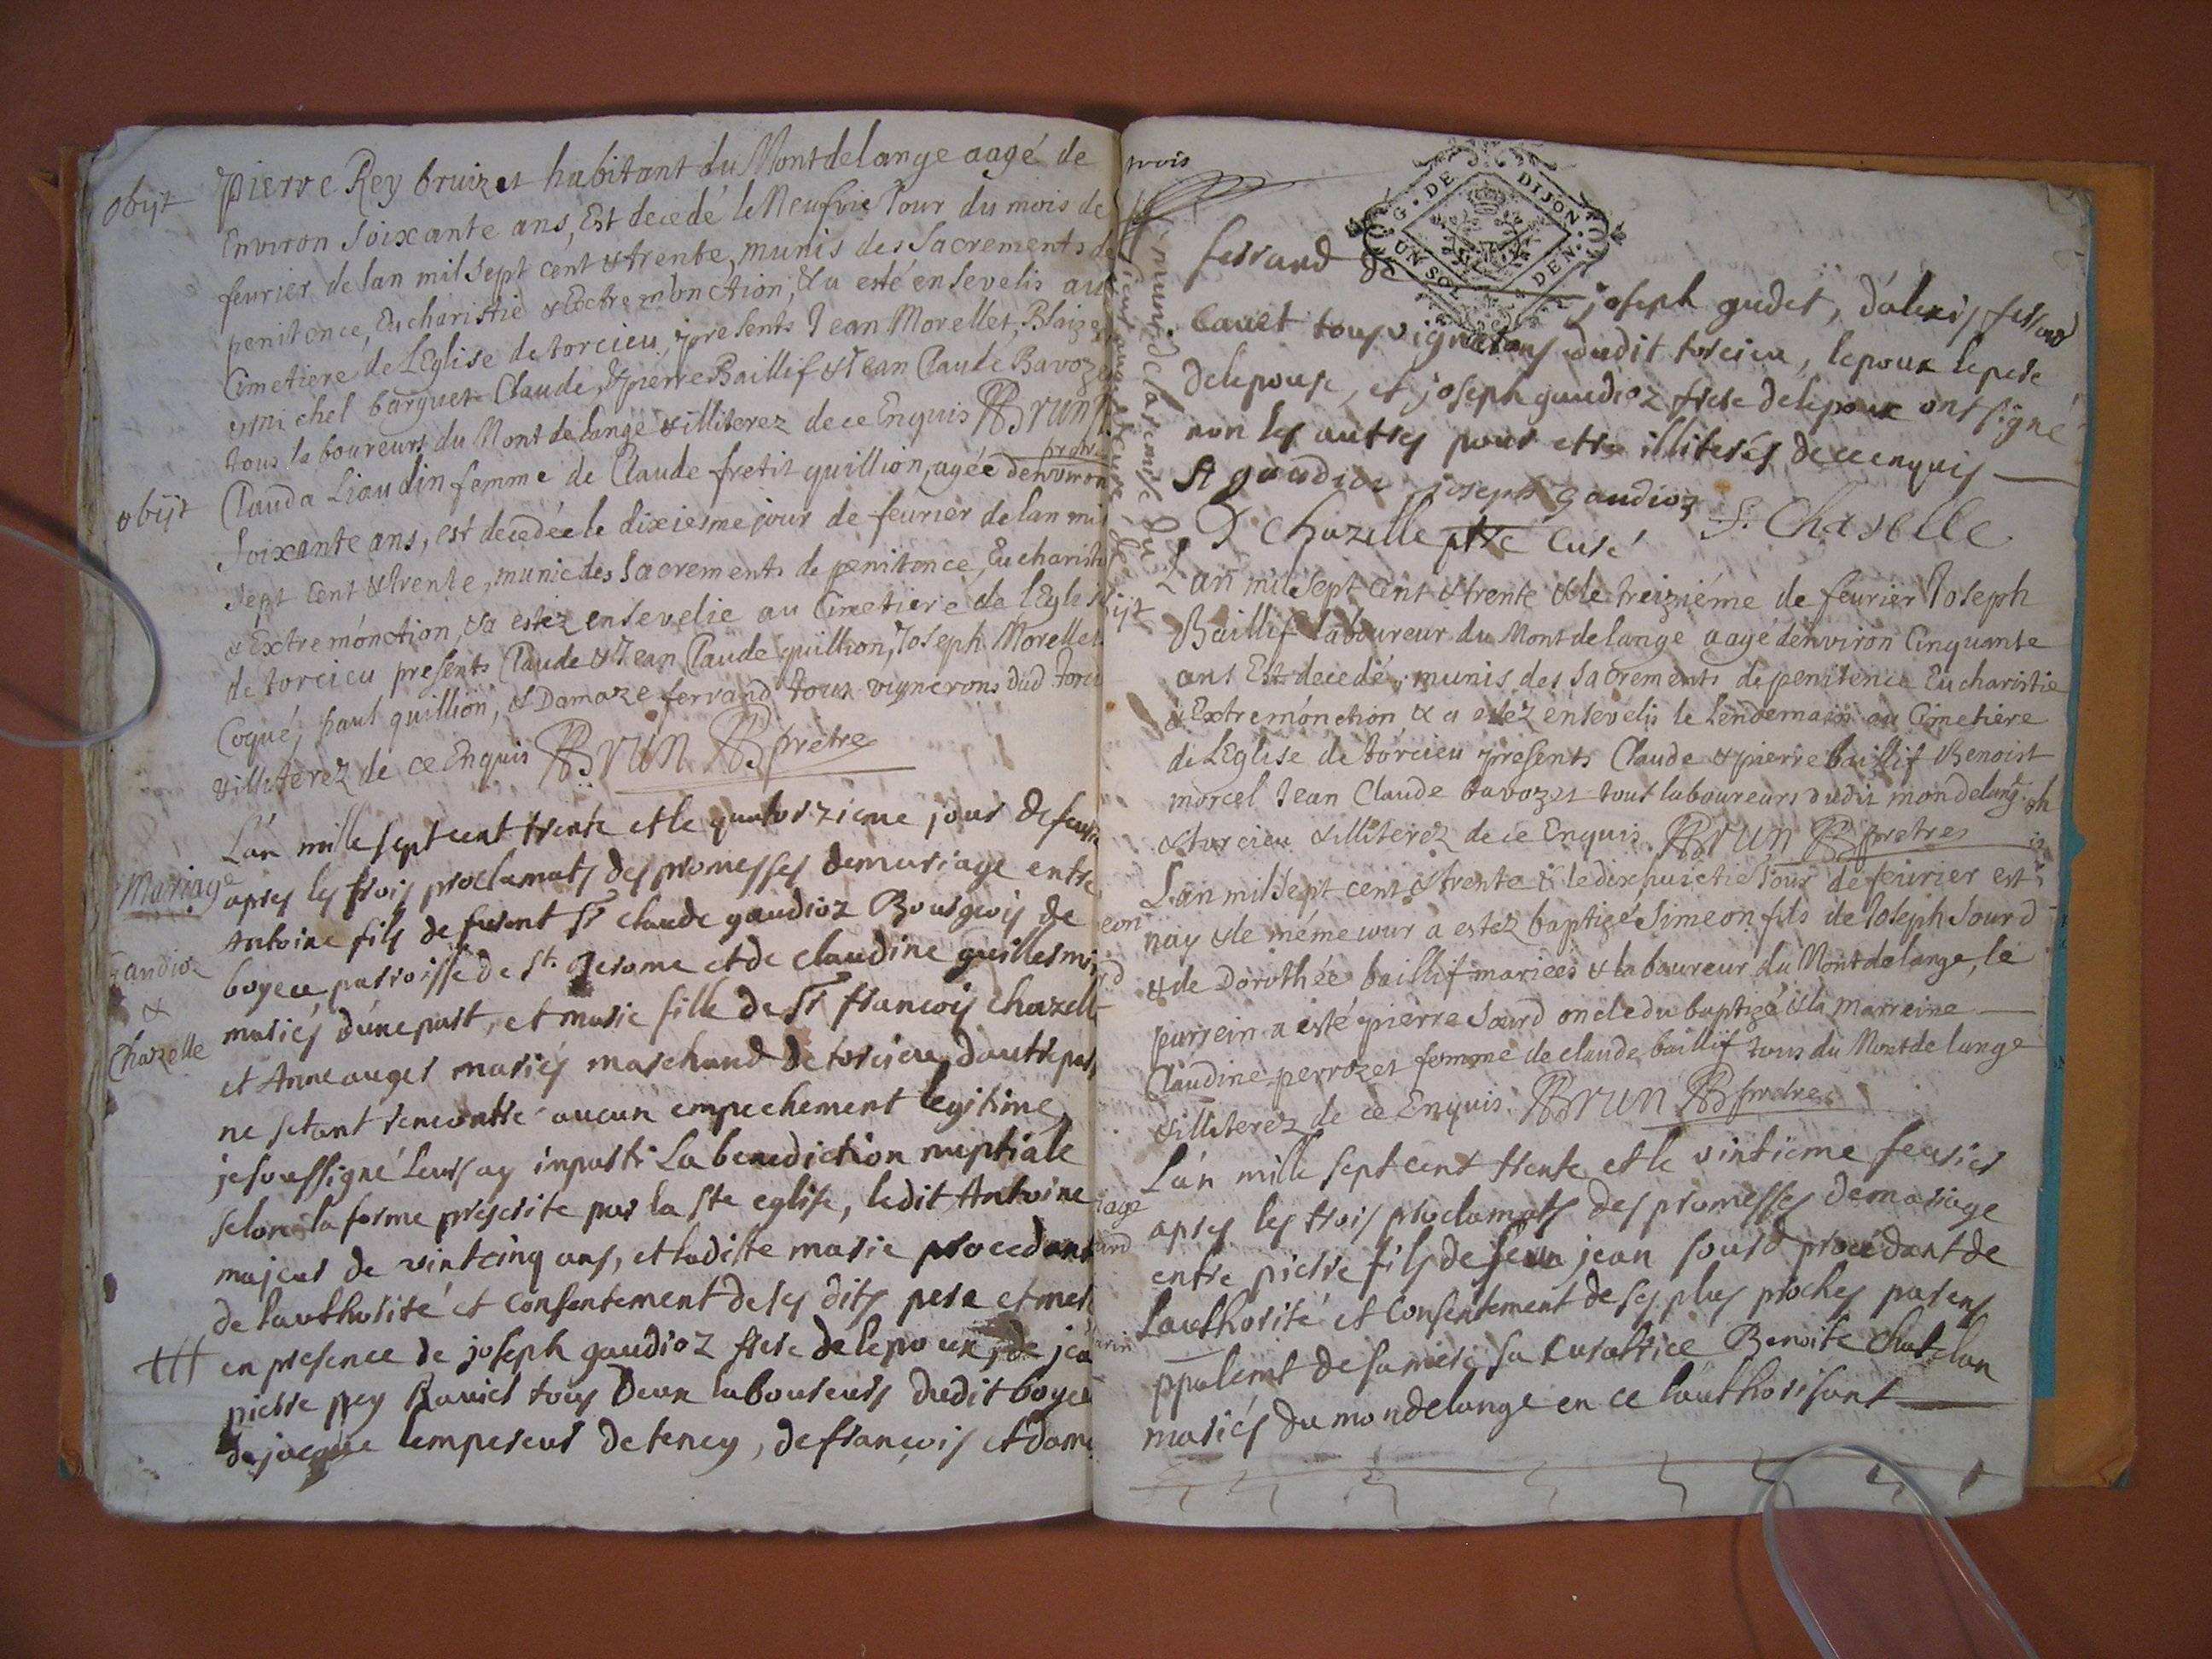 obijt
Pierre Rey bruizet habitant du Montdelange aagé de
Environ soixante ans, Est decedé le Neufvie Jour du mois de
fevrier de lan mil sept cent & trente, munis des Sacrements de
penitence, Eucharistie & Extremonction, & a esté ensevelis au
Cimetiere de LEglise de torcieu, presents Jean Morellet, Blaize
& Michel barquet Claude, & pierre Baillif & Jean Claude Bavozet
tous laboureurs du Montdelange & illiterez de ce Enquis BRUN
pretre
obijt
Clauda Liaudin femme de Claude fretit quillion, agée denviron
Soixante ans, est decedée le dixiesme jour de feurier de lan mil
sept Cent & trente, munie des Sacrements de penitence, Eucharistie
& Extremonction, & a estez ensevelie au Cimetiere de lEglise
de torcieu presents Claude & Jean Claude quillion, Joseph Morellet
Coqué, paul quillion, & Damaze ferrand tous vignerons dud torcieu
& illiterez de ce Enquis BRUN pretre
Mariage
Gaudioz
&
Chazelle
Lan mille sept cent trente et le quatorzieme jour de feuri
apres les trois proclamats des promesses de mariage entre
Antoine fils de furent Sr claude gaudioz Bourgeois de
boyeu parroisse de St. Jerome et de claudine guillermi
mariés d'une part, et marie fille de Sr francois chazelle
et Anne auger mariés marchand de torcieu, d'autre part
ne setant rencontré aucun empechement legitime,
je soussigné leurs ay imparti La benediction nuptiale
selon la forme prescrite par la ste eglise, ledit Antoine
majeur de vintcinq ans, et ladite marie procedant
de lauthorité et consentement de ses dits pere et mere
en presence de joseph gaudioz frere de lepoux, de jea
pierre rey Ravier tous deux laboureurs dudit boyeu
de jacque lempereur de tency, de francois et dam
trois
ferrand de joseph gudet, d'alexis ferrand
Cauet tous vignerons dudit torcieu, lepoux le pere
de lepouse, et joseph gaudioz frere de lepoux ont signé
non les autres pour etre illiterés de ce enquis
A gaudioz joseph gaudioz
D Chazelle ptre Curé f. Chaselle
obijt
Lan mil sept Cent & trente & le treiziéme de feurier Joseph
Baillif laboureur du Montdelange aagé denviron Cinquante
ans Est decedé, munis des Sacrements de penitence Eucharistie
& Extremonction & a estez ensevelis le lendemain au Cimetiere
de LEglise de torcieu presents Claude & pierre baillif Benoist
morcel Jean Claude bavozet tout laboureurs dudit mondelange
& torcieu & illiterez de ce Enquis BRUN pretre
Lan mil sept cent & trente & le dix huictie Jour de feurier est
nay & le méme iour a estez baptizé Simeon fils de Joseph Sourd
& de Dorothée baillif mariees & laboureur du Montdelange, le
parrein a esté pierre Sourd oncle du baptizé & la marreine
Claudine perrozet femme de claude baillif tous du Montdelange
& illiterez de ce Enquis BRUN pretre
L'an mille sept cent trente et le vintieme feurier
apres les trois proclamats des promesses de mariage
entre pierre fils de feu jean sourd procedant de
lauthorité et Consentement de ses plus proches parens
ppalemt de sa mere sa curatrice Benoite Chatelan
mariés du mondelange en ce lauthorisant
G. DE DIJON
UN SOL DEN